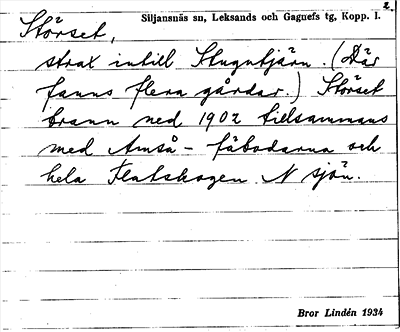 2.
Siljansnäs sn, Leksands och Gagnefs tg, Kopp. l.
Störset,
strax intill Stugutjärn. (Där
fanns flera gårdar.) Störset
brann ned 1902 tillsammans
med Amså - fäbodarna och
hela Flatskogen N sjön.
Bror Lindén 1934